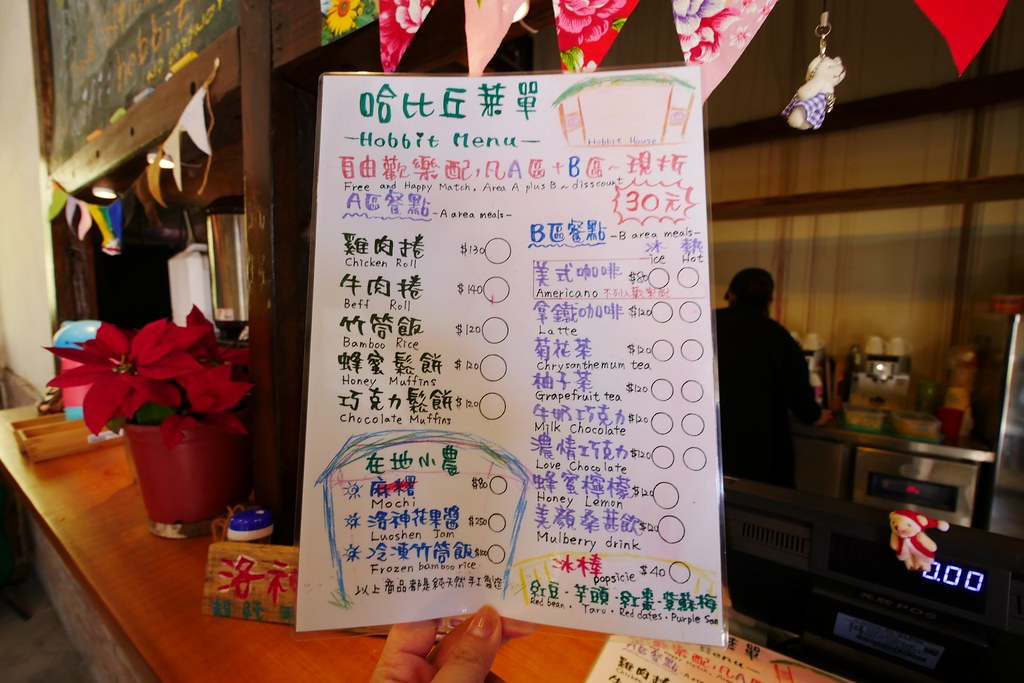 hobbit
哈比丘菜單
-Hobbit Menu-
Hobbit House
自由歡樂配,凡A區+B區~現折
Free and Happy Match, Area A plus B ~ disscount
30元
A區餐點 -A area meals-
雞肉捲 $130
Chicken Roll
牛肉捲 $140
Beff Roll
竹筒飯 $120
Bamboo Rice
蜂蜜鬆餅 $120
Honey Muffins
巧克力鬆餅 $120
Chocolate Muffins
在地小農
麻糬 $80
Mochi
洛神花果醬 $250
Luoshen Jam
冷凍竹筒飯 $100
Frozen bamboo rice
以上商品都是純天然手工製造
B區餐點 -B area meals-
冰 熱
ice Hot
美式咖啡 $80
Americano 不列入歡樂配
拿鐵咖啡 $120
Latte
菊花茶 $120
Chrysanthemum tea
柚子茶 $120
Grapefruit tea
牛奶巧克力 $120
Milk Chocolate
濃情巧克力 $120
Love Chocolate
蜂蜜檸檬 $120
Honey Lemon
美顏桑葚飲 $120
Mulberry drink
冰棒 $40
popsicie
紅豆·芋頭·紅棗·紫蘇梅
Red bean · Taro · Red dates · Purple Sam
洛神
0.00
雞肉捲
Chicken Roll